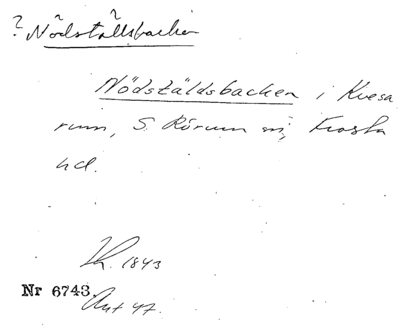 ? ?
Nödställsbacken
Nödställdsbacken i Kvesa
rum, S. Rörum sn, Frosta
hd.
Lh. 1843
Nr 6743
Ant 47.